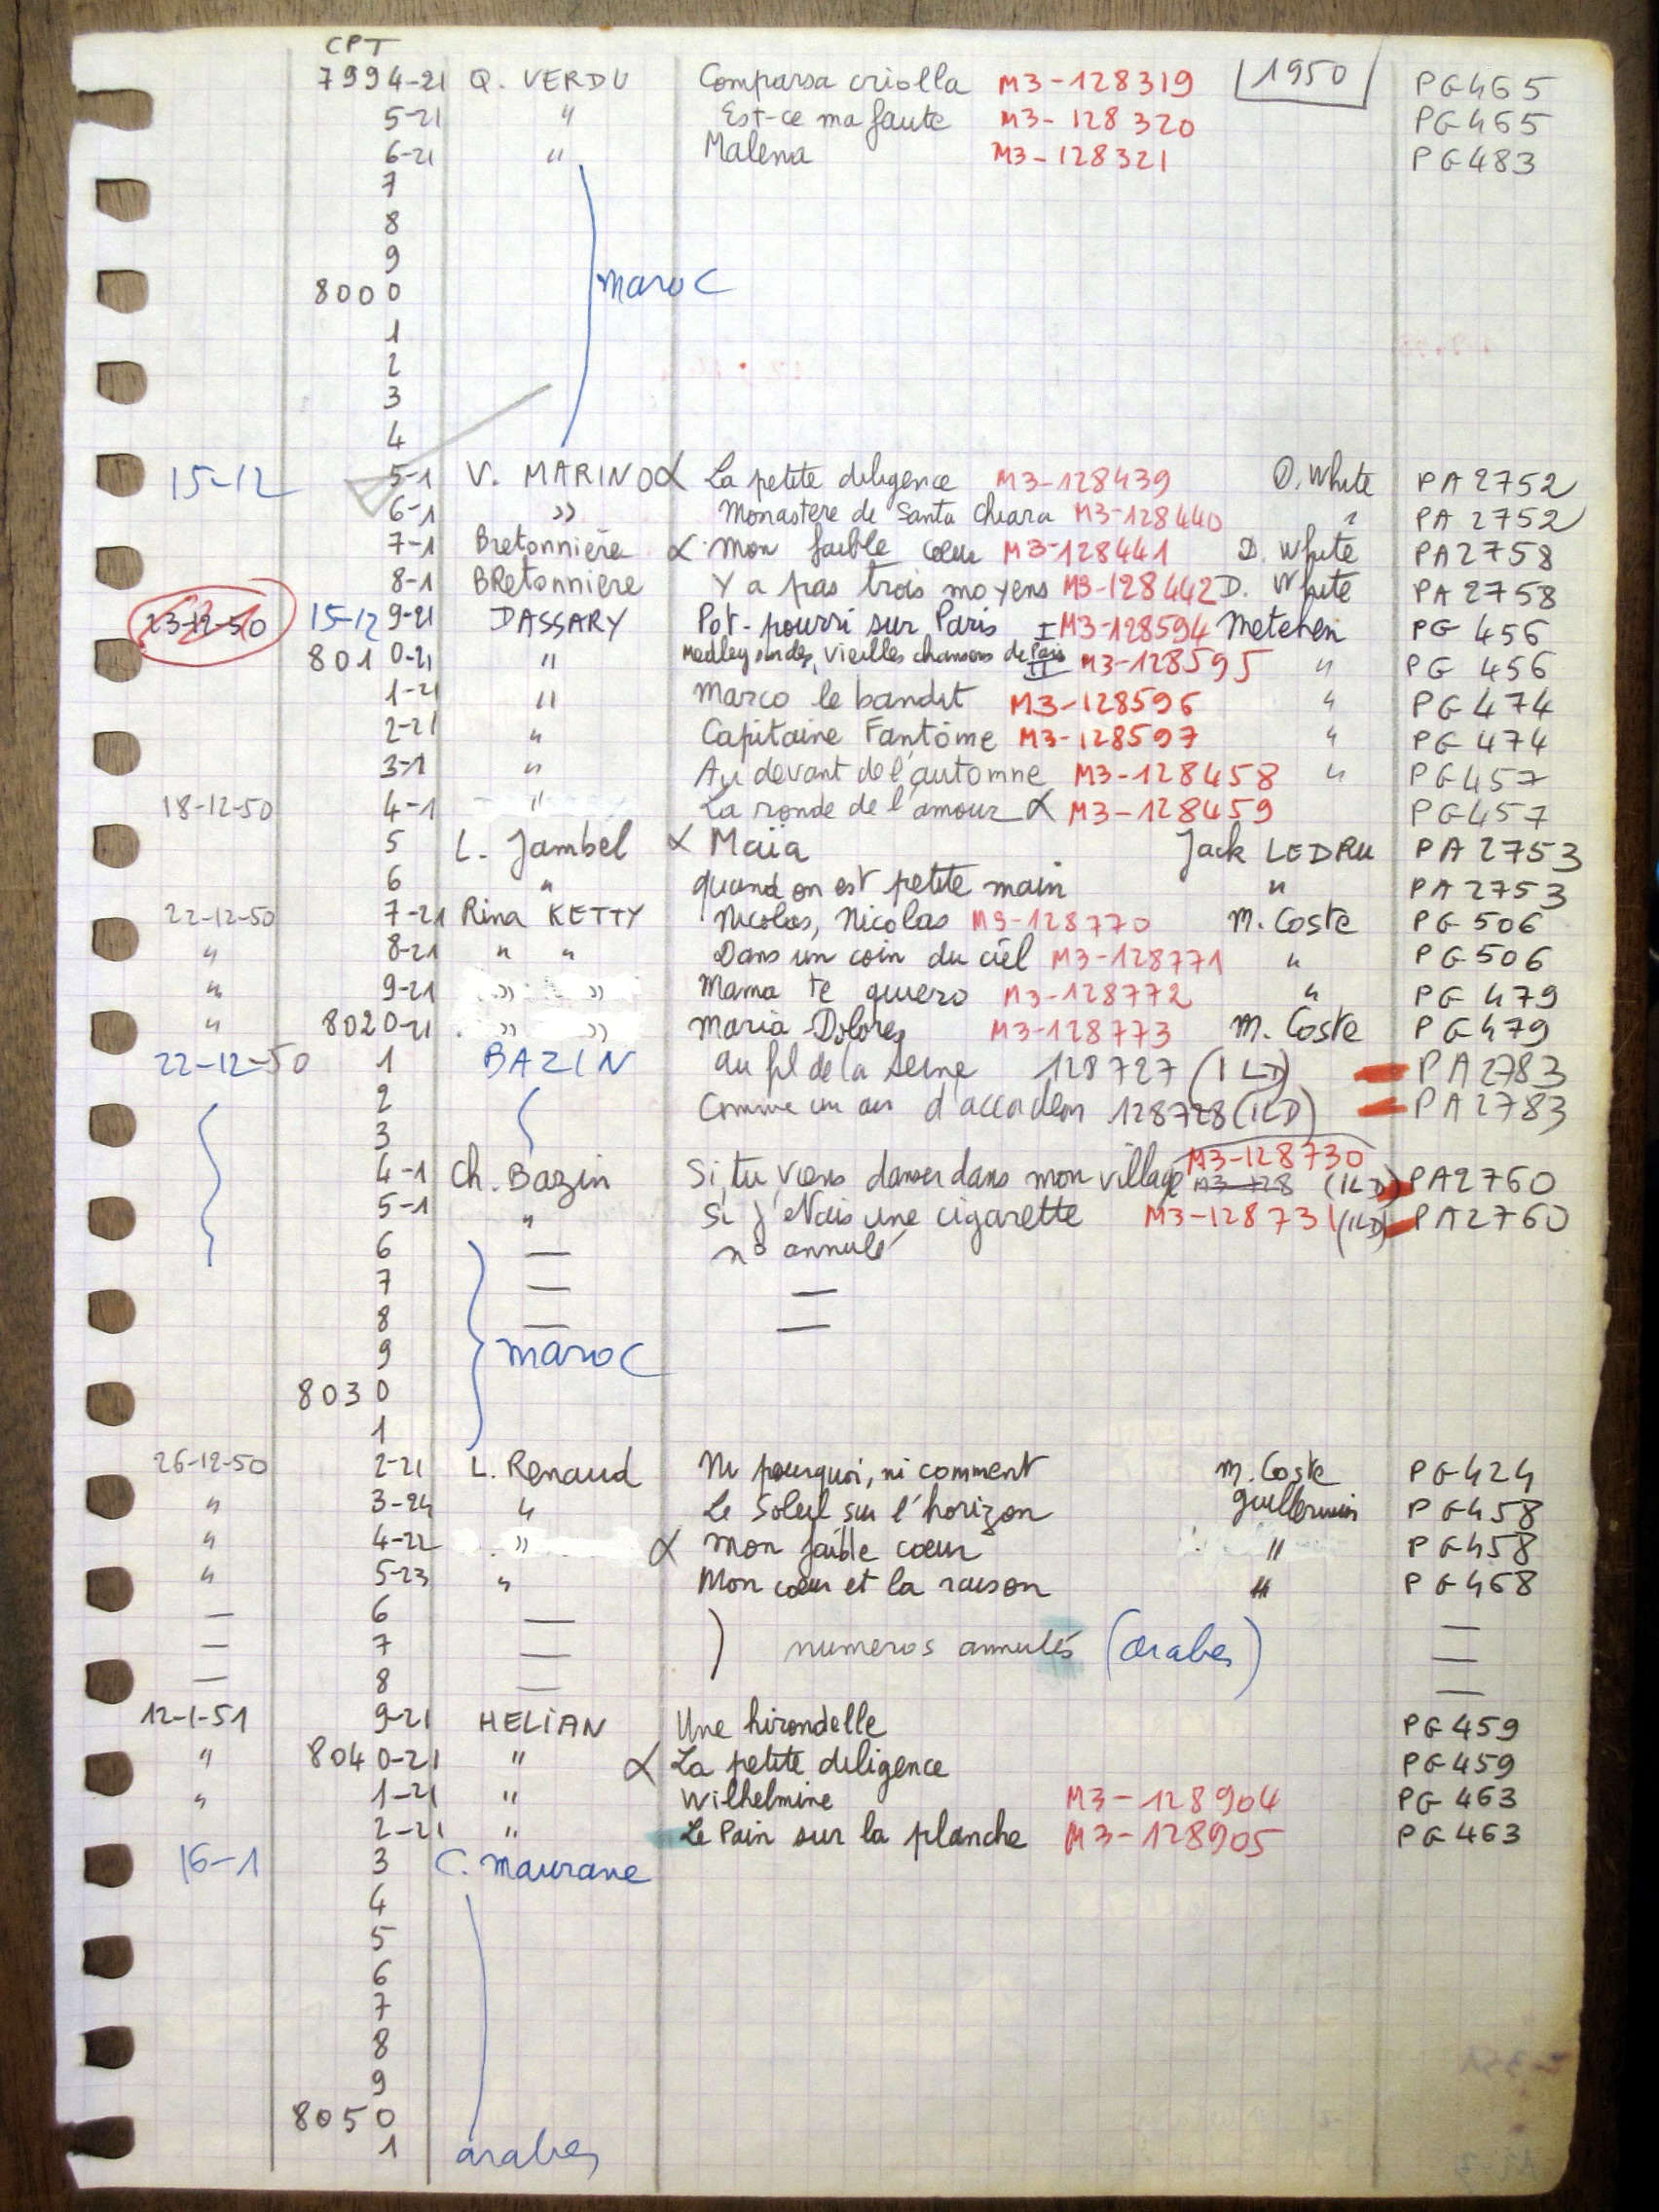 CPT
7994-21 Q. VERDU Comparsa criolla M3-128319 1950 PG465
5-21 " Est-ce ma faute M3-128320 PG465
6-21 " Malena M3-128321 PG483
7
8
9
8000 maroc
1
2
3
4
15-12 5-1 V. MARINO α La petite diligence M3-128439 D. White PA2752
6-1 " Monastere de Santa Chiara M3-128440 " PA2752
7-1 Bretonnière α mon faible cœur M3-128441 D. White PA2758
8-1 BRetonnière Y a pas trois moyens M3-128442 D. White PA2758
23-12-50 15-12 9-21 DASSARY Pot-pourri sur Paris I M3-128594 Metehen PG 456
8010-21 " Medley sur des vieilles chansons de Paris II M3-128595 " PG 456
1-21 " Marco le bandit M3-128596 " PG474
2-21 " Capitaine Fantôme M3-128597 " PG474
3-1 " Au devant de l'automne M3-128458 " PG457
18-12-50 4-1 " La ronde de l'amour α M3-128459 PG457
5 L. Jambel α Maïa Jack LEDRU PA2753
6 " quand on est petite main " PA2753
22-12-50 7-21 Rina KETTY Nicolas, Nicolas M3-128770 M. Coste PG506
" 8-21 " " Dans un coin du ciel M3-128771 " PG506
" 9-21 " " Mama te quiero M3-128772 " PG 479
" 8020-21 " " Maria-Dolores M3-128773 M. Coste PG479
22-12-50 1 BAZIN au fil de la seine 128727 (ILD) PA2783
2 Comme un air d'accordeon 128728 (ILD) PA2783
3
4-1 Ch. Bazin Si tu viens danser dans mon village M3-128730 M3-128 (ILD) PA2760
5-1 " Si j'étais une cigarette M3-128731 (ILD) PA2760
6 — n° annulé
7 — —
8 — —
9 maroc
8030
1
26-12-50 2-21 L. Renaud Ni pourquoi, ni comment M. Coste PG424
" 3-24 " Le Soleil sur l'horizon guillermin PG458
" 4-22 " α mon faible cœur " PG458
" 5-23 " Mon cœur et la raison " PG468
— 6 — —
— 7 — numeros annulés (arabes) —
— 8 — —
12-1-51 9-21 HELIAN Une hirondelle PG459
" 8040-21 " α La petite diligence PG459
" 1-21 " Wilhelmine M3-128904 PG463
2-21 " Le Pain sur la planche M3-128905 PG463
16-1 3 C. maurane
4
5
6
7
8
9
8050
1 arabes